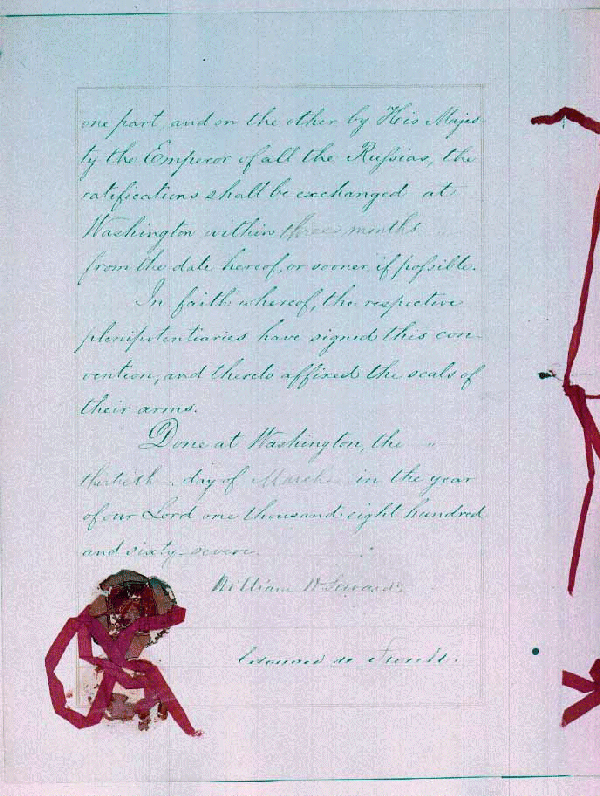 one part, and on the other by His Majes
ty the Emperor of all the Russias, the
ratifications shall be exchanged at
Washington within three months
from the date hereof, or sooner, if possible.
In faith whereof, the respective
plenipotentiaries have signed this con-
vention, and thereto affixed the seals of
their arms.
Done at Washington, the
thirtieth day of March in the year
of our Lord one thousand eight hundred
and sixty-seven.
William H Seward
Edouard de Stoeckl.